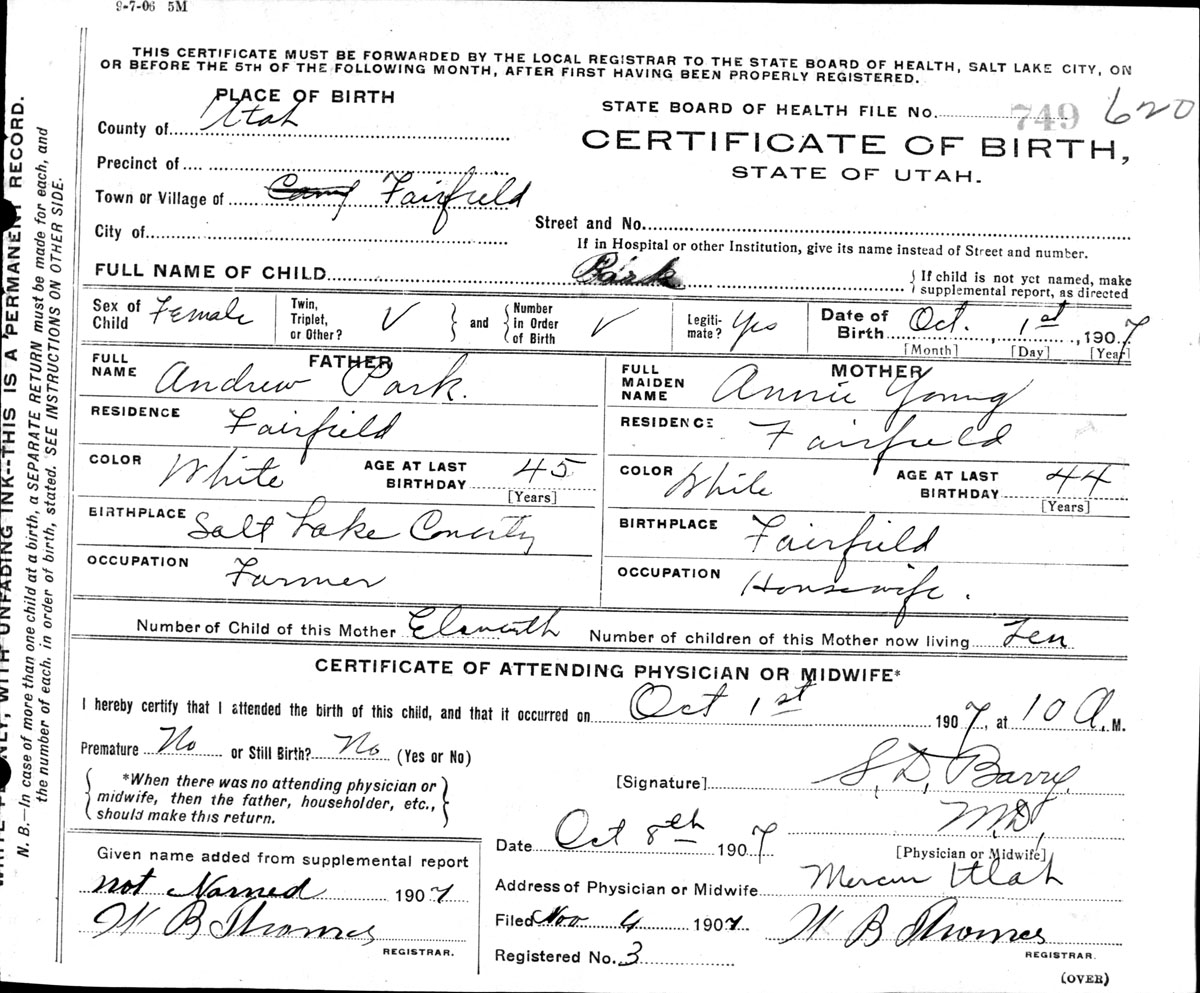 9-7-06 5M
THIS CERTIFICATE MUST BE FORWARDED BY THE LOCAL REGISTRAR TO THE STATE BOARD OF HEALTH, SALT LAKE CITY, ON
OR BEFORE THE 5TH OF THE FOLLOWING MONTH, AFTER FIRST HAVING BEEN PROPERLY REGISTERED.
PLACE OF BIRTH
STATE BOARD OF HEALTH FILE No. 749 620
County of Utah
CERTIFICATE OF BIRTH,
STATE OF UTAH.
Precinct of
Town or Village of Fairfield
City of
Street and No.
If in Hospital or other Institution, give its name instead of Street and number.
FULL NAME OF CHILD Park
{ If child is not yet named, make
supplemental report, as directed
Sex of Child Female
Twin, Triplet, or Other? V } and { Number in Order of Birth V
Legiti-mate? Yes
Date of Birth Oct. 1st, 1907
[Month] [Day] [Year]
FATHER
FULL NAME Andrew Park.
RESIDENCE Fairfield
COLOR White AGE AT LAST BIRTHDAY 45
[Years]
BIRTHPLACE Salt Lake County
OCCUPATION Farmer
MOTHER
FULL MAIDEN NAME Annie Young
RESIDENCE Fairfield
COLOR White AGE AT LAST BIRTHDAY 44
[Years]
BIRTHPLACE Fairfield
OCCUPATION Housewife.
Number of Child of this Mother Eleventh Number of children of this Mother now living Ten
CERTIFICATE OF ATTENDING PHYSICIAN OR MIDWIFE*
I hereby certify that I attended the birth of this child, and that it occurred on Oct 1st 1907, at 10 A.M.
Premature No or Still Birth? No (Yes or No)
{ *When there was no attending physician or
midwife, then the father, householder, etc.,
should make this return. }
[Signature] S. D. Barry
M.D.
[Physician or Midwife]
Date Oct 8th 1907
Address of Physician or Midwife Mercur Utah
Filed Nov 4 1907 W B Thomas
REGISTRAR.
Registered No. 3
Given name added from supplemental report
not Named 1907
W B Thomas
REGISTRAR.
(OVER)
N. B.—In case of more than one child at a birth, a SEPARATE RETURN must be made for each, and
the number of each, in order of birth, stated. SEE INSTRUCTIONS ON OTHER SIDE.
ONLY, WITH UNFADING INK--THIS IS A PERMANENT RECORD.